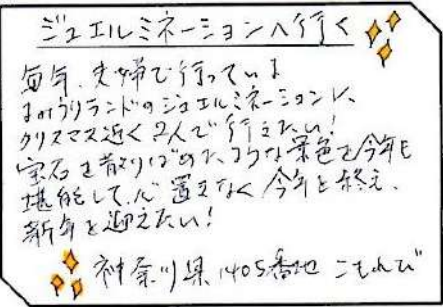 ジュエルミネーションへ行く
毎年、夫婦で行っている
よみうりランドのジュエルミネーションに、
クリスマス近く2人で行きたい!
宝石を散りばめたような景色を今年も
堪能して、心置きなく今年を終え、
新年を迎えたい!
神奈川県 1405番地 こもれび